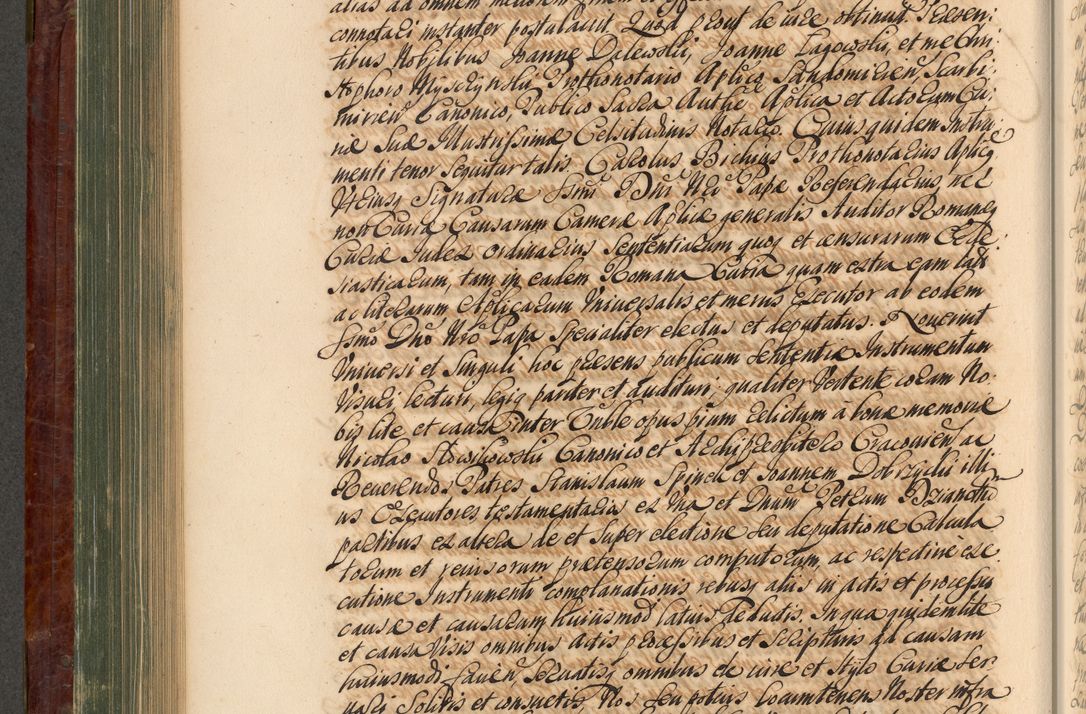 alias ad omnem meliorem
connotari instanter postulavit Quod prout de iure obtinuit Presen:
tibus Nobilibus Joanne Dalewski, Joanne Lagowski, et me Chri
stophoro Mysczynski Prothonotario Aplico, Sandomirien, Scarbi:
mirien Canonico, Publico Sacra Authe Aplica et Actorum Cu:
riæ Suæ Illustrissimæ Celsitudinis Notario. Cuius quidem Instru
menti tenor sequitur talis. Carolus Bichius Prothonotarius Aplicq
Vtriusq Signaturæ Ssmi Dni Nri Papæ Referendarius, nec
non Curiæ Causarum Cameræ Aplicæ generalis Auditor Romanæq
Curiæ Iudex ordinarius Sententiarum quoq et censurarum Eccle:
siasticarum, tam in eadem Romana Curia quam extra eam latar
ac literarum Aplicarum Vniuersalis et merus Executor ab eodem
Ssmo Dno Nro Papa Specialiter electus et deputatus. Nouerint
Vniuersi et Singuli hoc præsens publicum Sententiæ Instrumentum
Visuri lecturi, legiq pariter et audituri, qualiter Vertente coram No:
bis lite et causa inter Vnble opus pium relictum à bonæ memoriæ
Nicolao Canonico et Archipresbitero Cracovien ac
Reuerendos Patres Stanislaum Spinek et Joannem Dobrzycki illi
us Executores testamentarios ex Vna et Dnum Petrum
partibus ex altera de et super electione seu deputatione Calcula
torum et reuisorum prætensorum computorum, ac respectiue exe
cutione Instrumenti complanationis rebusq alijs in actis et processu
causæ et causarum huiusmodi latius deductis. In qua quidem lite
et causa Visis omnibus actis processibus et Scripturis ad causam
huiusmodi facien Seruatisq omnibus de iure et Stylo Curiæ Ser
uari Solitis et consuetis, Nos seu potius locumtenens Noster infra